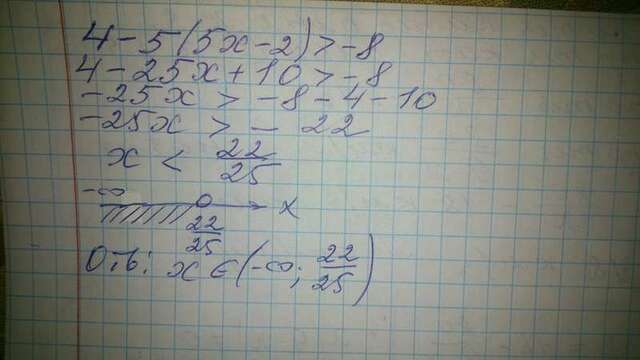 4 - 5(5x - 2) > -8
4 - 25x + 10 > -8
-25x > -8 - 4 - 10
-25x > - 22
x < 22/25
-∞ 22/25 x
Отв: x ∈ (-∞; 22/25)